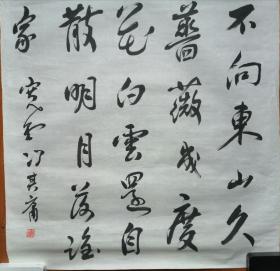 不向東山久
薔薇幾度
花白雲還自
散明月落誰
家 寬堂馮其庸